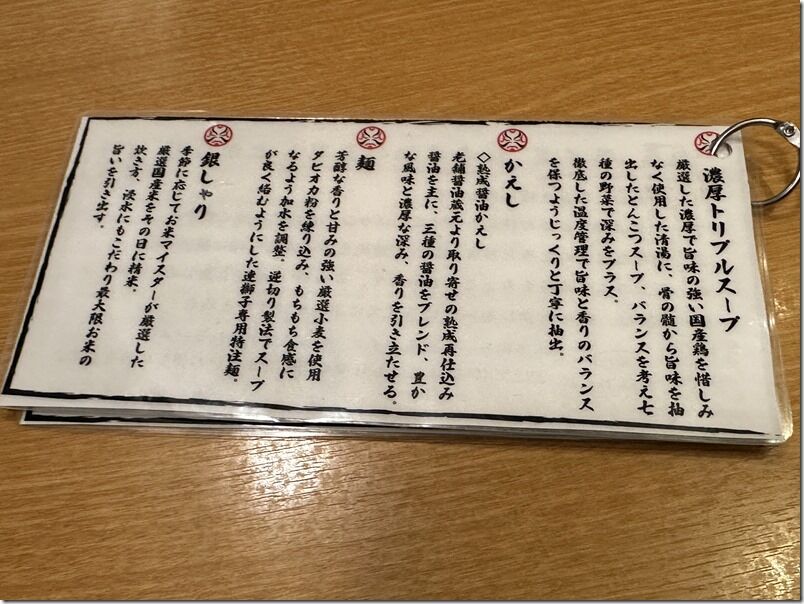 濃厚トリプルスープ
厳選した濃厚で旨味の強い国産鶏を惜しみ
なく使用した清湯に、骨の髄から旨味を抽
出したとんこつスープ、バランスを考え七
種の野菜で深みをプラス。
徹底した温度管理で旨味と香りのバランス
を保つようじっくりと丁寧に抽出。
かえし
◇熟成醤油かえし
老舗醤油蔵元より取り寄せの熟成再仕込み
醤油を主に、三種の醤油をブレンド、豊か
な風味と濃厚な深み、香りを引き立たせる。
麺
芳醇な香りと甘みの強い厳選小麦を使用
タピオカ粉を練り込み、もちもち食感に
なるよう加水を調整。逆切り製法でスープ
が良く絡むようにした連獅子専用特注麺。
銀しゃり
季節に応じてお米マイスターが厳選した
厳選国産米をその日に精米。
炊き方、浸水にもこだわり最大限お米の
旨いを引き出す。